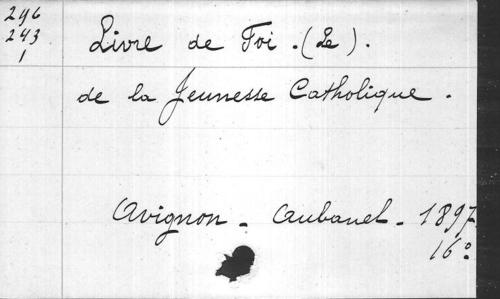 296
243
1
Livre de Foi . (Le) .
de la Jeunesse Catholique .
Avignon - Aubanel - 1897
16º